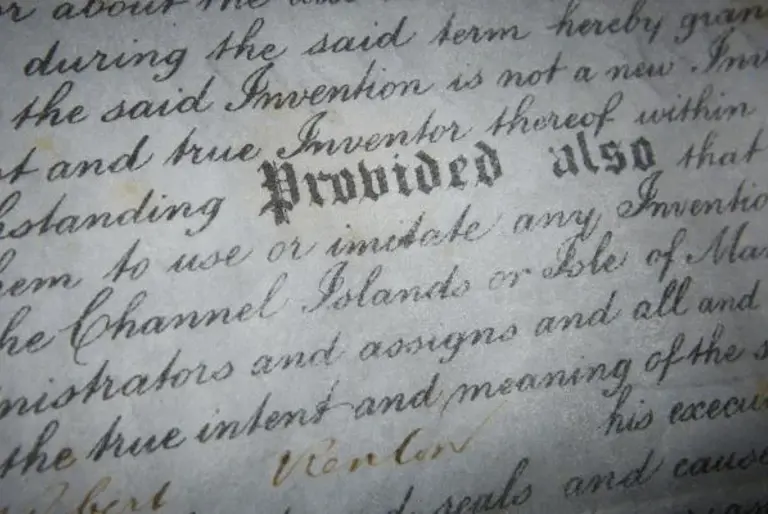 about the
during the said term hereby gran
the said Invention is not a new Inv
t and true Inventor thereof within
hstanding Provided also that
hem to use or imitate any Inventio
he Channel Islands or Isle of Ma
nistrators and assigns and all and
the true intent and meaning of the s
his execu
seals and cause